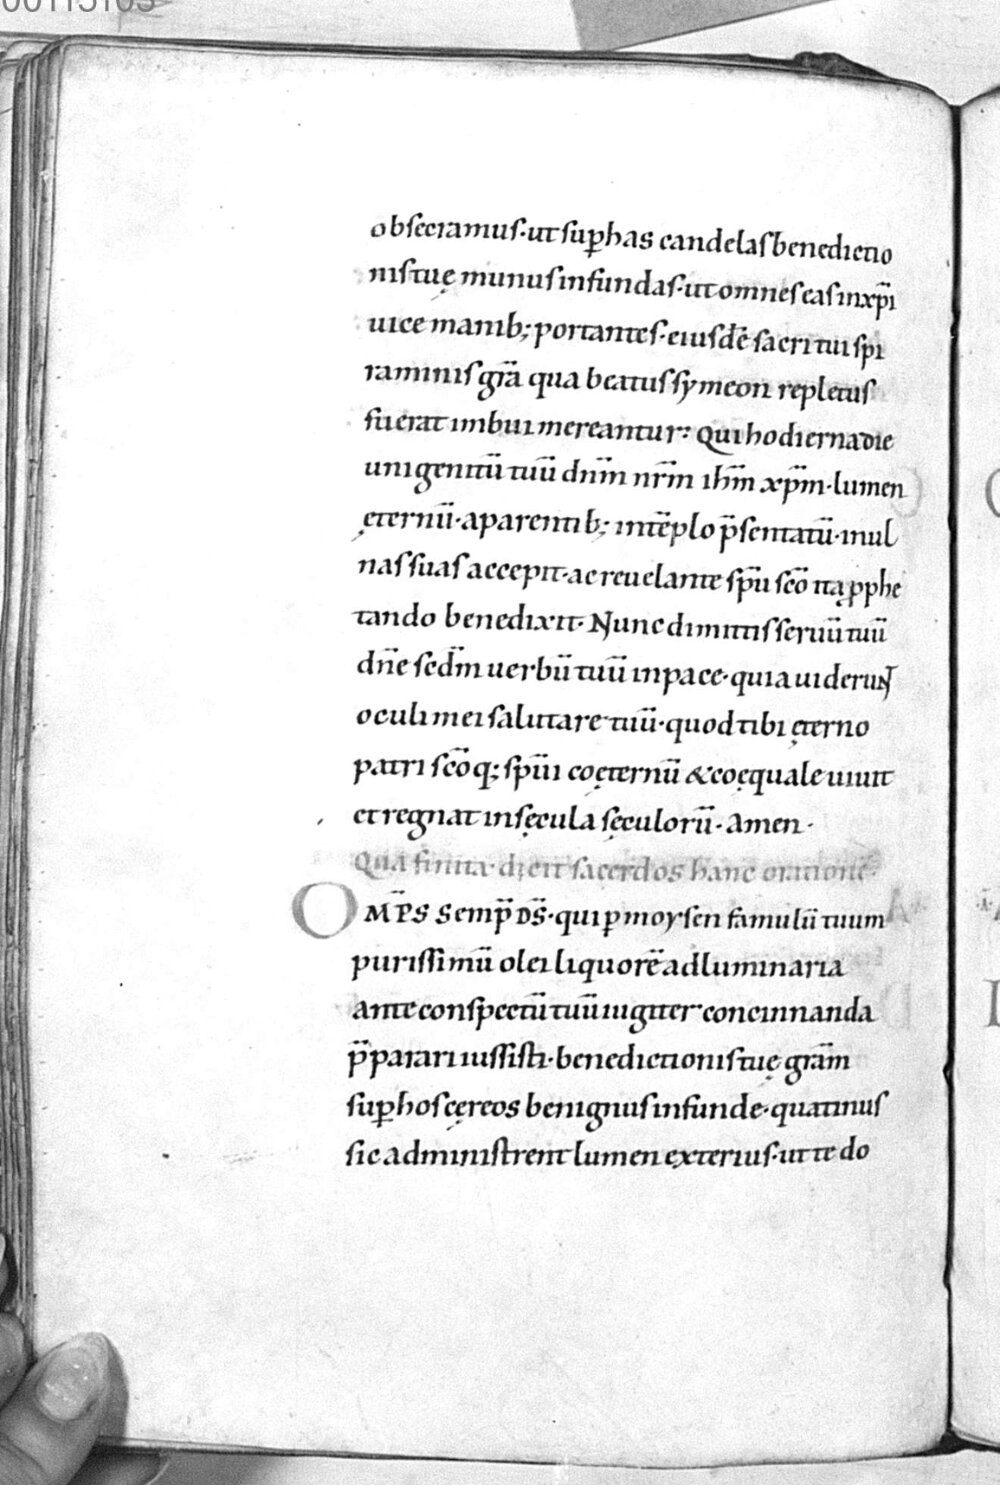 00115103
obsecramus· ut sup̱ has candelas benedictio
nis tuę munus infundas· ut omnes eas in xp̄i
uice manib; portantes· eiusdē sacri tui spi
raminis gr̄a qua beatus symeon repletus
fuerat imbui mereantur: Qui hodierna die
unigenitū tuū dn̄m nr̄m ih̄m xp̄m· lumen
ęternū· aparentib; in tēplo p̄sentatū· in ul
nas suas accepit· ac reuelante sp̄u sc̄o ita ꝓphe
tando benedixit· Nunc dimittis seruū tuū
dn̄e sed̄m uerbū tuū in pace· quia uiderunt
oculi mei salutare tuū· quod tibi ęterno
patri sc̄oq; sp̄ui coęternū & coęquale uiuit
et regnat in sęcula sęculorū· Amen·
Qua finita· dicit sacerdos hanc orationē·
OMP̄S Semp̄ DS̄· qui ꝑ moysen famulū tuum
purissimū olei liquorē ad luminaria
ante conspectū tuū iugiter concinnanda
p̄parari iussisti· benedictionis tuę gr̄am
sup̱ hos cęreos benignus infunde· quatinus
sic administrent lumen exterius· ut te do